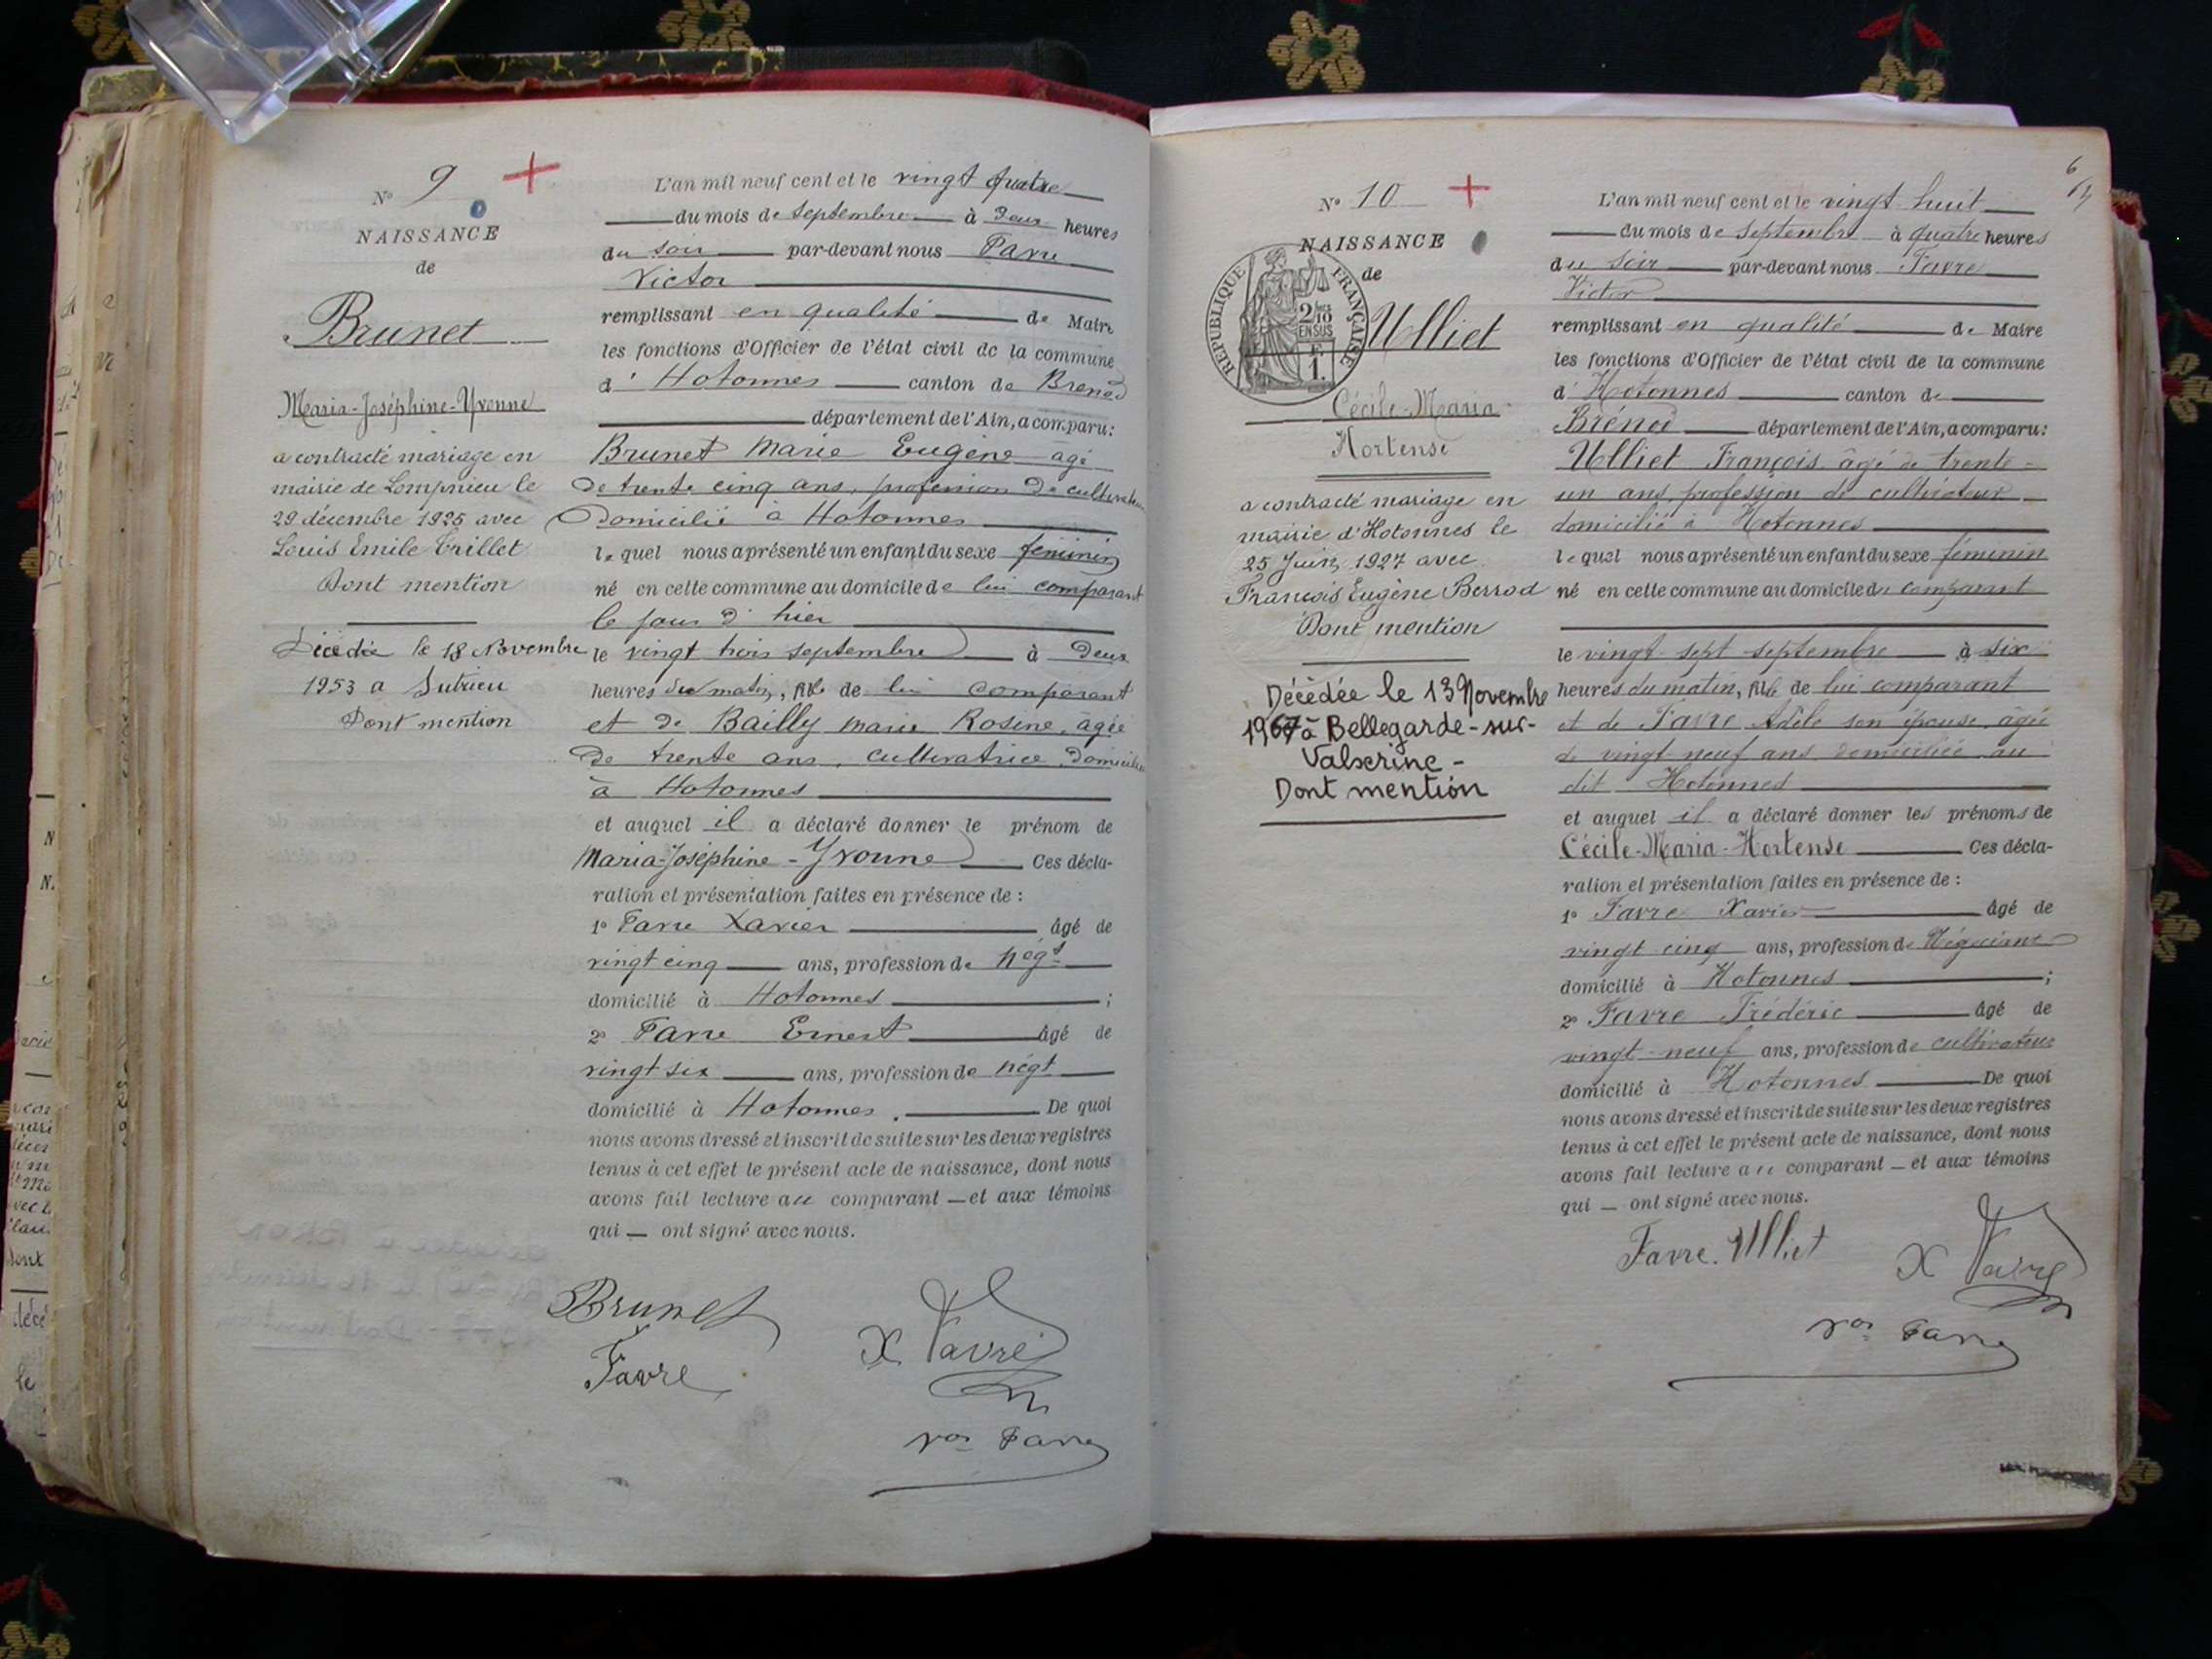 N° 9
NAISSANCE
de
Brunet
Maria-Joséphine-Yvonne
a contracté mariage en
mairie de Lompnieu le
29 décembre 1925 avec
Louis Emile Trillet
Dont mention
Décédée le 18 Novembre
1953 a Sutrieu
Dont mention
L'an mil neuf cent et le vingt quatre
du mois de septembre à deux heures
du soir par-devant nous Favre
Victor
remplissant en qualité de Maire
les fonctions d'Officier de l'état civil de la commune
d' Hotonnes canton de Brenod
département de l'Ain, a comparu:
Brunet Marie Eugène âgé
de trente cinq ans, profession de cultivateur
Domicilié à Hotonnes
lequel nous a présenté un enfant du sexe féminin
né en cette commune au domicile de lui comparant
le jour d'hier
le vingt trois septembre à deux
heures du matin, fille de lui comparant
et de Bailly marie Rosine, âgée
de trente ans, cultivatrice domiciliée
à Hotonnes
et auquel il a déclaré donner le prénom de
Maria-Joséphine-Yvonne Ces décla-
ration et présentation faites en présence de :
1° Favre Xavier âgé de
vingt cinq ans, profession de négt
domicilié à Hotonnes ;
2° Favre Ernest âgé de
vingt six ans, profession de négt
domicilié à Hotonnes. De quoi
nous avons dressé et inscrit de suite sur les deux registres
tenus à cet effet le présent acte de naissance, dont nous
avons fait lecture au comparant — et aux témoins
qui — ont signé avec nous.
Brunet
X Favre
Favre
Vor Favre
6
N° 10
NAISSANCE
de
RÉPUBLIQUE FRANÇAISE
2/10
EN SUS
F.
1.
Ulliet
Cécile-Maria
Hortense
a contracté mariage en
mairie d'Hotonnes le
25 Juin 1927 avec
François Eugène Berrod
Dont mention
Décédée le 13 Novembre
1967 à Bellegarde-sur-
Valserine -
Dont mention
L'an mil neuf cent et le vingt huit
du mois de septembre à quatre heures
du soir par-devant nous Favre
Victor
remplissant en qualité de Maire
les fonctions d'Officier de l'état civil de la commune
d' Hotonnes canton de
Brénod département de l'Ain, a comparu:
Ulliet François âgé de trente-
un ans, profession de cultivateur
domicilié à Hotonnes
lequel nous a présenté un enfant du sexe féminin
né en cette commune au domicile du comparant
le vingt-sept septembre à six
heures du matin, fille de lui comparant
et de Favre Adèle son épouse âgée
de vingt-neuf ans domiciliée au
dit Hotonnes
et auquel il a déclaré donner les prénoms de
Cécile-Maria-Hortense Ces décla-
ration et présentation faites en présence de :
1° Favre Xavier âgé de
vingt cinq ans, profession de Négociant
domicilié à Hotonnes ;
2° Favre Frédéric âgé de
vingt-neuf ans, profession de cultivateur
domicilié à Hotonnes De quoi
nous avons dressé et inscrit de suite sur les deux registres
tenus à cet effet le présent acte de naissance, dont nous
avons fait lecture au comparant — et aux témoins
qui — ont signé avec nous.
Favre. Ulliet
X Favre
Vor Favre